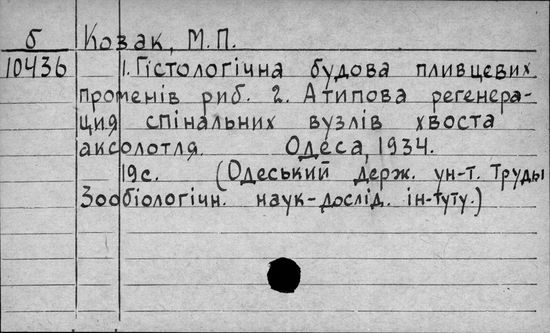 б Козак, М.П.
10436 1. Гістологічна будова пливцевих
променів риб. 2. Атипова регенера-
ция спінальних вузлів хвоста
аксолотля. Одеса, 1934.
19с. (Одеський держ. ун-т. Труды
Зообіологічн. наук-дослід. ін-туту.)